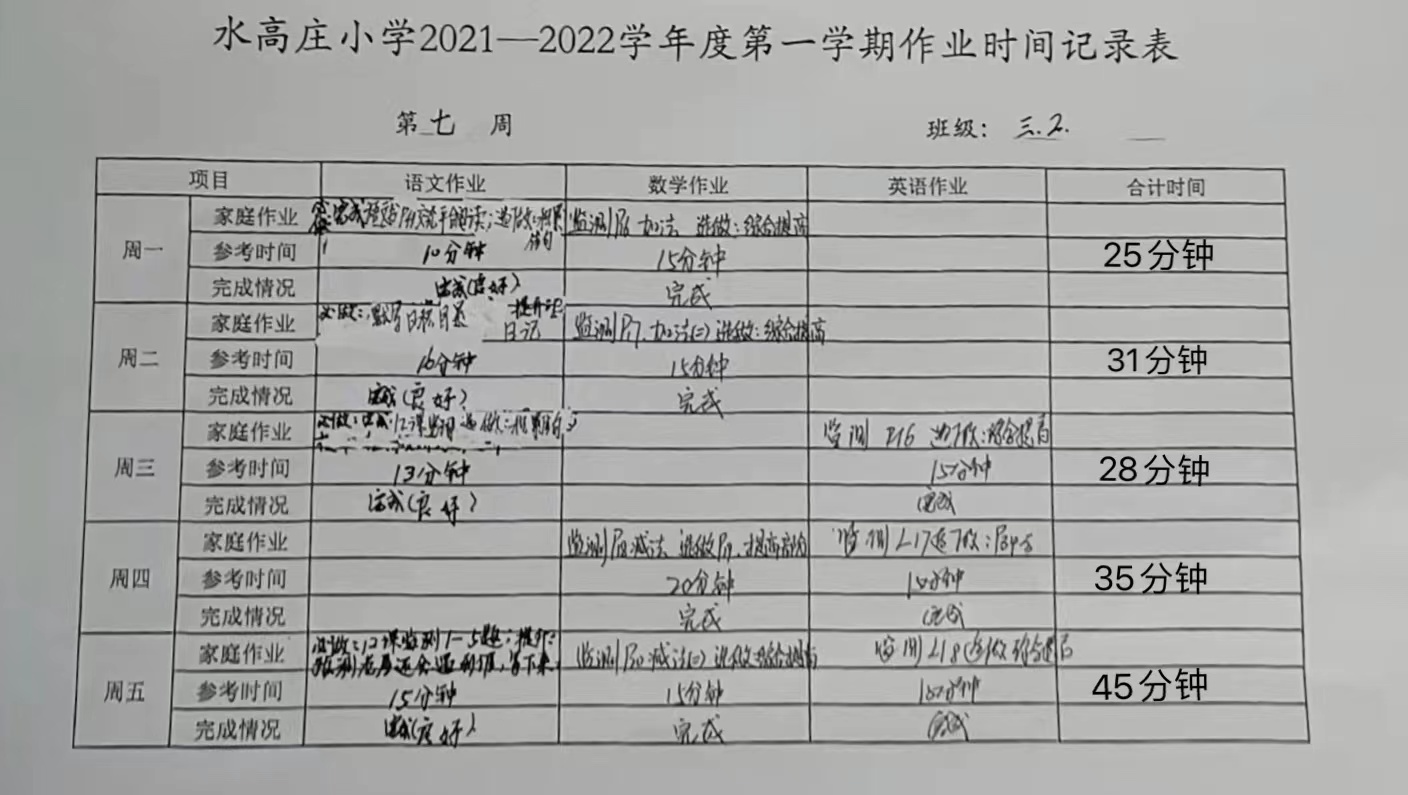 水高庄小学2021—2022学年度第一学期作业时间记录表
第 七 周 班级：三.2.
项目 语文作业 数学作业 英语作业 合计时间
周一
家庭作业 监测 加法 选做：综合提高
参考时间 10分钟 15分钟 25分钟
完成情况 完成(良好) 完成
周二
家庭作业 必做：默写 日记 监测P7. 加法(二) 选做：综合提高
参考时间 16分钟 15分钟 31分钟
完成情况 完成(良好) 完成
周三
家庭作业 必做：完成12课监测 选做： 监测 P16 选做：综合提高
参考时间 13分钟 15分钟 28分钟
完成情况 完成(良好) 完成
周四
家庭作业 监测 减法 选做 监测 L17选做：
参考时间 20分钟 15分钟 35分钟
完成情况 完成 完成
周五
家庭作业 必做：12课监测1-5题； 监测 减法(二) 选做综合提高 监测 L18选做综合提高
写下来.
参考时间 15分钟 15分钟 15分钟 45分钟
完成情况 完成(良好) 完成 完成